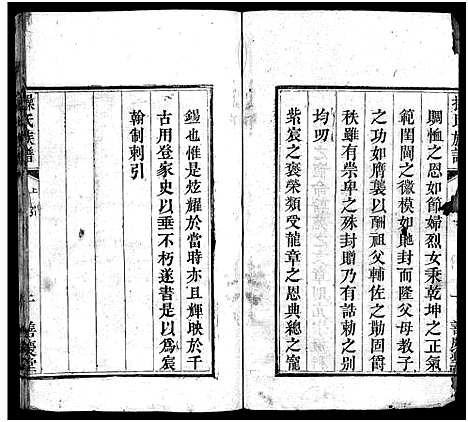 賙恤之恩如節婦烈女秉乾坤之正氣
範閨閫之徽模如貤封而隆父母教子
之功如膺襲以酬祖父輔佐之勛固爵
秩雖有崇卑之殊封贈乃有誥勅之别
均叨
紫宸之褒榮類受龍章之恩典總之寵
錫也惟是炫耀於當時亦且輝映於千
古用登家史以垂不朽遂書是以為宸
翰制刺引
操氏族譜
善慶堂